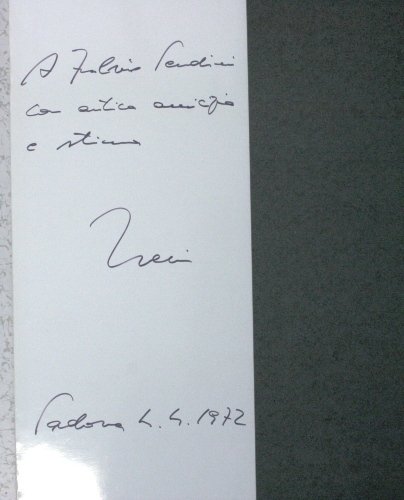 A Fulvio Pendini
con antica amicizia
e stima
Padova 4. 4. 1972